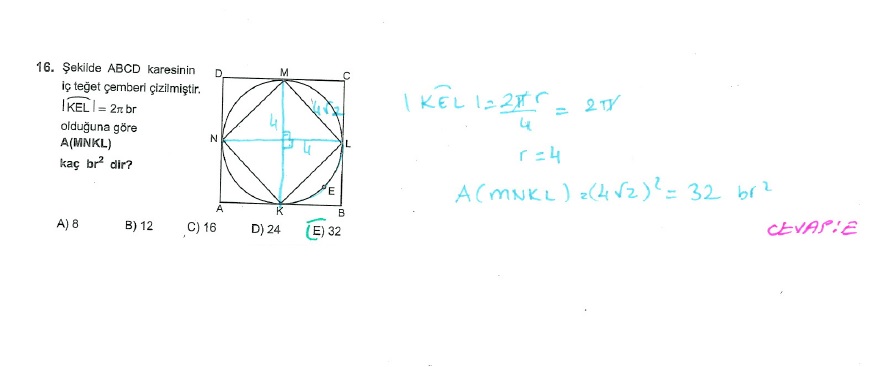 16. Şekilde ABCD karesinin
iç teğet çemberi çizilmiştir.
|KEL| = 2π br
olduğuna göre
A(MNKL)
kaç br² dir?
D M C
4√2
4
N 4 L
E
A K B
A) 8 B) 12 C) 16 D) 24 E) 32
|KEL| = 2πr/4 = 2π
r = 4
A(MNKL) = (4√2)² = 32 br²
CEVAP: E